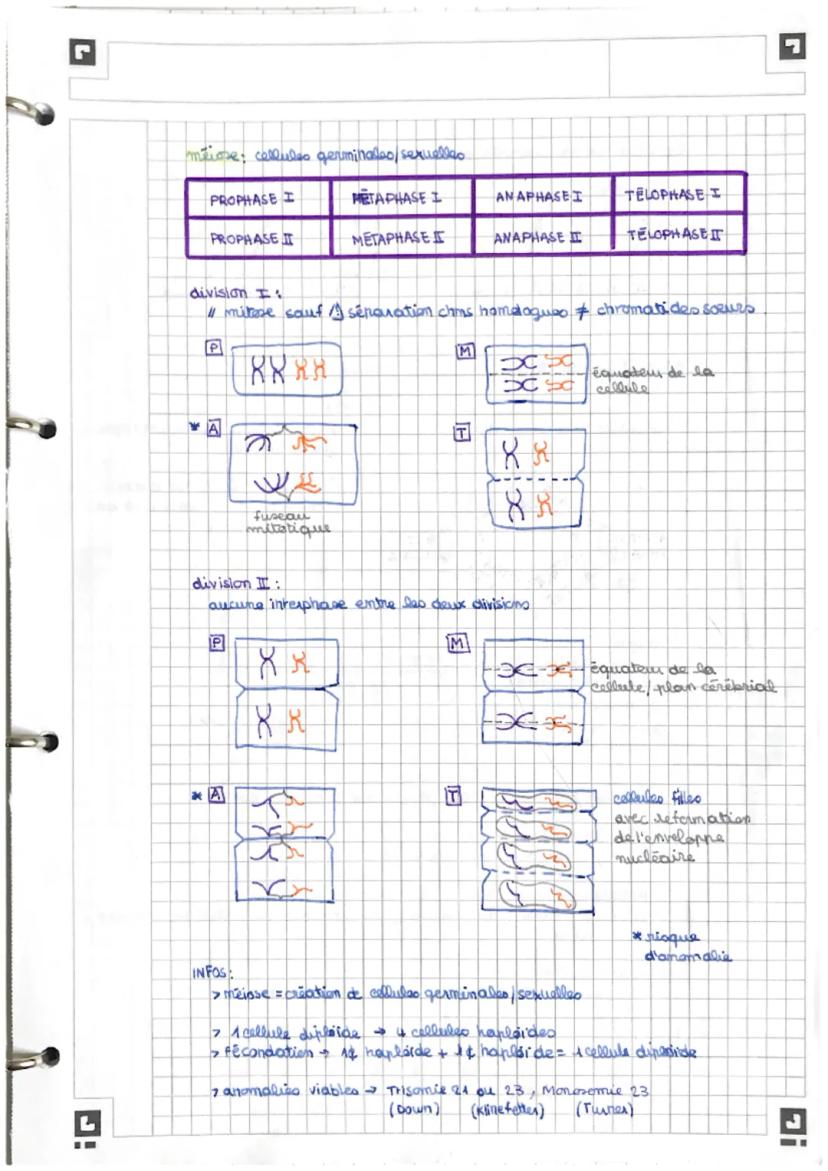 méiose: cellules germinales/sexuelles
PROPHASE I MÉTAPHASE I ANAPHASE I TÉLOPHASE I
PROPHASE II MÉTAPHASE II ANAPHASE II TÉLOPHASE II
division I :
// mitose sauf /!\ séparation chms homologues ≠ chromatides soeurs
P M
équateur de la
cellule
* A T
fuseau
mitotique
division II :
aucune interphase entre les deux divisions
P M
équateur de la
cellule/plan
* A T
cellules filles
avec reformation
de l'enveloppe
nucléaire
* risque
d'anomalie
INFOS:
> méiose = création de cellules germinales/sexuelles
> 1 cellule diploïde → 4 cellules haploïdes
> fécondation → 1¢ haploïde + 1¢ haploïde = 1 cellule diploïde
> anomalies viables → Trisomie 21 ou 23, Monosomie 23
(Down) (Klinefelter) (Turner)